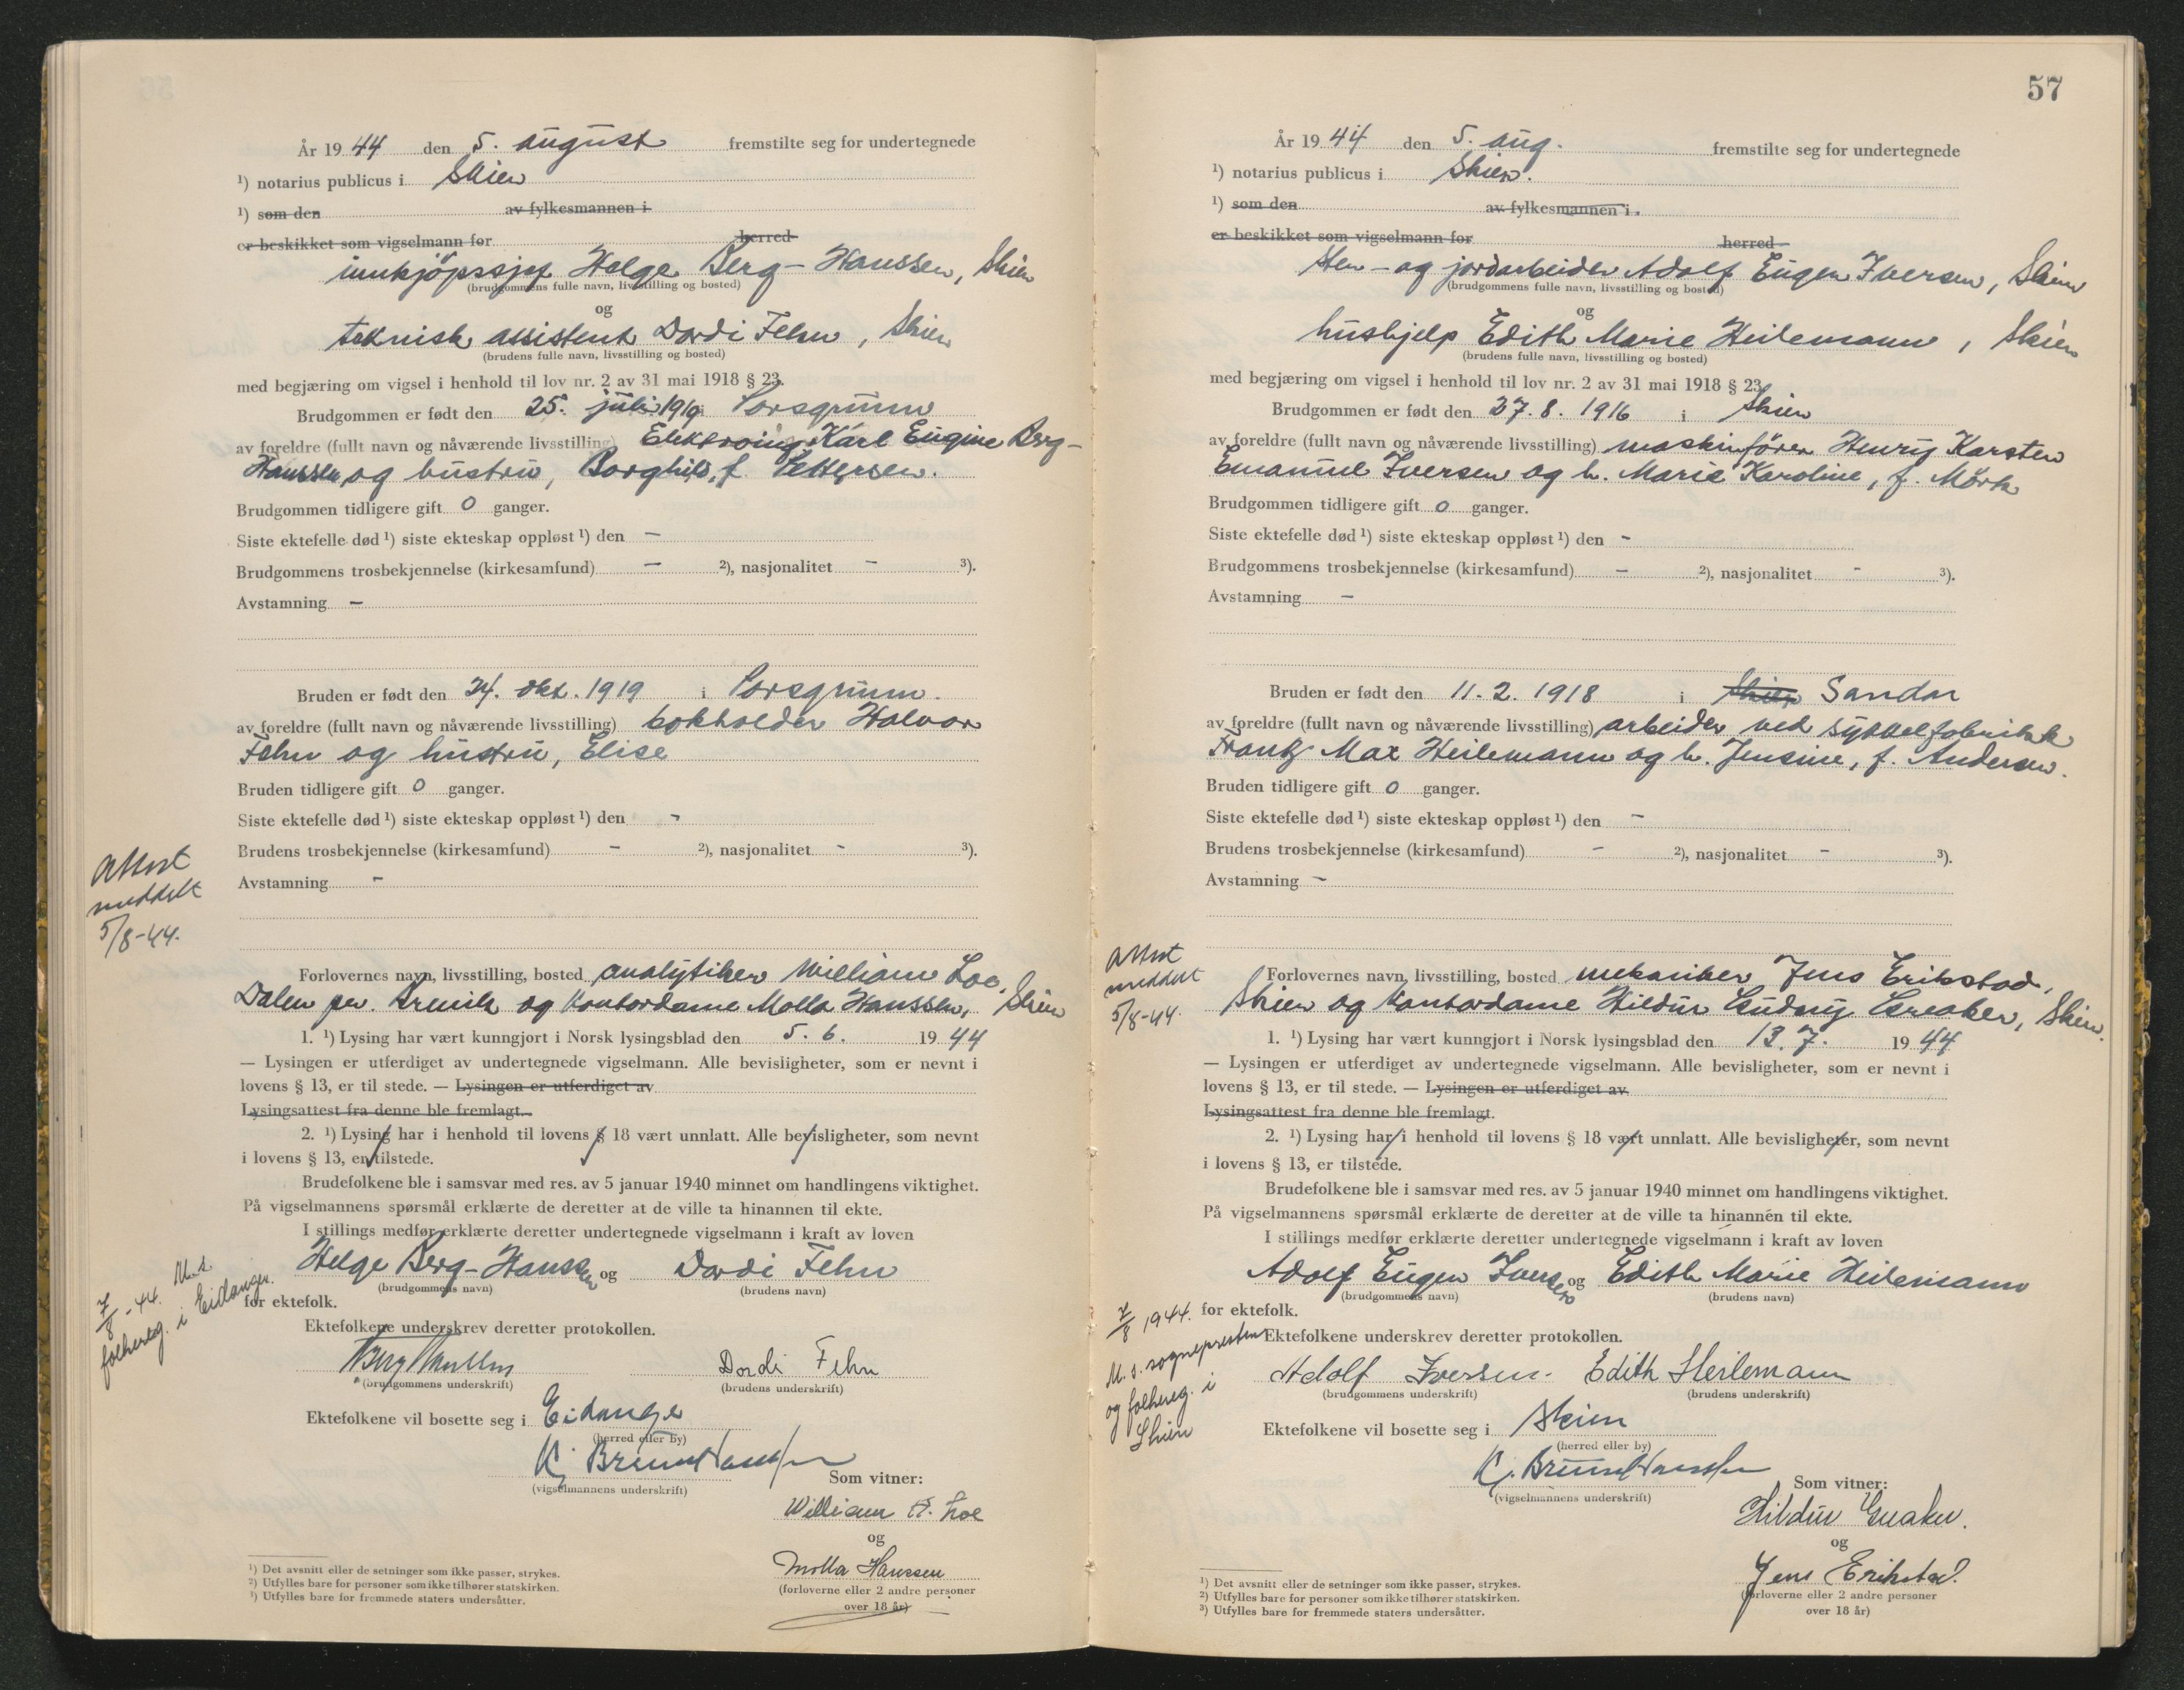 År 1944 den 5. august fremstilte seg for undertegnede
¹) notarius publicus i Skien
¹) som den av fylkesmannen i
er beskikket som vigselmann for herred
innkjøpssjef Helge Berg-Hanssen, Skien
(brudgommens fulle navn, livsstilling og bosted)
og
teknisk assistent Dordi Fehn, Skien
(brudens fulle navn, livsstilling og bosted)
med begjæring om vigsel i henhold til lov nr. 2 av 31 mai 1918 § 23.
Brudgommen er født den 25. juli 1919 i Porsgrunn
av foreldre (fullt navn og nåværende livsstilling) Elektroing. Karl Eugine Berg-
Hanssen og hustru, Borghild, f. Pettersen.
Brudgommen tidligere gift 0 ganger.
Siste ektefelle død ¹) siste ekteskap oppløst ¹) den -
Brudgommens trosbekjennelse (kirkesamfund) - ²), nasjonalitet - ³).
Avstamning -
Bruden er født den 24. okt. 1919 i Porsgrunn.
av foreldre (fullt navn og nåværende livsstilling) bokholder Halvor
Fehn og hustru, Elise
Bruden tidligere gift 0 ganger.
Siste ektefelle død ¹) siste ekteskap oppløst ¹) den -
Brudens trosbekjennelse (kirkesamfund) - ²), nasjonalitet - ³).
Avstamning -
Attest
meddelt
5/8-44.
Forlovernes navn, livsstilling, bosted analytiker William Loe,
Dalen pr. Brevik og kontordame Molla Hanssen, Skien
1. ¹) Lysing har vært kunngjort i Norsk lysingsblad den 5. 6. 1944
— Lysingen er utferdiget av undertegnede vigselmann. Alle bevisligheter, som er nevnt i
lovens § 13, er til stede. — Lysingen er utferdiget av
Lysingsattest fra denne ble fremlagt.
2. ¹) Lysing har i henhold til lovens § 18 vært unnlatt. Alle bevisligheter, som nevnt
i lovens § 13, er tilstede.
Brudefolkene ble i samsvar med res. av 5 januar 1940 minnet om handlingens viktighet.
På vigselmannens spørsmål erklærte de deretter at de ville ta hinannen til ekte.
I stillings medfør erklærte deretter undertegnede vigselmann i kraft av loven
Helge Berg-Hanssen og Dordi Fehn
(brudgommens navn) (brudens navn)
for ektefolk.
7/8-44. M. s.
folkereg. i Eidanger.
Ektefolkene underskrev deretter protokollen.
Berg Hanssen Dordi Fehn
(brudgommens underskrift) (brudens underskrift)
Ektefolkene vil bosette seg i Eidanger
(herred eller by)
(vigselmannens underskrift)
Som vitner:
William H. Loe
og
Molla Hanssen
(forloverne eller 2 andre personer
over 18 år)
¹) Det avsnitt eller de setninger som ikke passer, strykes.
²) Utfylles bare for personer som ikke tilhører statskirken.
³) Utfylles bare for fremmede staters undersåtter.
57
År 1944 den 5. aug. fremstilte seg for undertegnede
¹) notarius publicus i Skien.
¹) som den av fylkesmannen i
er beskikket som vigselmann for herred
Sten- og jordarbeider Adolf Eugen Iversen, Skien
(brudgommens fulle navn, livsstilling og bosted)
og
hushjelp Edith Marie Heilemann, Skien
(brudens fulle navn, livsstilling og bosted)
med begjæring om vigsel i henhold til lov nr. 2 av 31 mai 1918 § 23.
Brudgommen er født den 27. 8. 1916 i Skien
av foreldre (fullt navn og nåværende livsstilling) maskinfører Henrij Karsten
Emanuel Iversen og h. Marie Karoline, f. Mørk
Brudgommen tidligere gift 0 ganger.
Siste ektefelle død ¹) siste ekteskap oppløst ¹) den -
Brudgommens trosbekjennelse (kirkesamfund) - ²), nasjonalitet - ³).
Avstamning -
Bruden er født den 11. 2. 1918 i Skien Sandar
av foreldre (fullt navn og nåværende livsstilling) arbeider ved sykkelfabrikk
Frantz Max Heilemann og h. Jensine, f. Andersen.
Bruden tidligere gift 0 ganger.
Siste ektefelle død ¹) siste ekteskap oppløst ¹) den -
Brudens trosbekjennelse (kirkesamfund) - ²), nasjonalitet - ³).
Avstamning -
Attest
meddelt
5/8-44.
Forlovernes navn, livsstilling, bosted mekaniker Jens Erikstad,
Skien og kontordame Hildur Gudny Greaker, Skien.
1. ¹) Lysing har vært kunngjort i Norsk lysingsblad den 13. 7. 1944
— Lysingen er utferdiget av undertegnede vigselmann. Alle bevisligheter, som er nevnt i
lovens § 13, er til stede. — Lysingen er utferdiget av
Lysingsattest fra denne ble fremlagt.
2. ¹) Lysing har i henhold til lovens § 18 vært unnlatt. Alle bevisligheter, som nevnt
i lovens § 13, er tilstede.
Brudefolkene ble i samsvar med res. av 5 januar 1940 minnet om handlingens viktighet.
På vigselmannens spørsmål erklærte de deretter at de ville ta hinannen til ekte.
I stillings medfør erklærte deretter undertegnede vigselmann i kraft av loven
Adolf Eugen Iversen og Edith Marie Heilemann
(brudgommens navn) (brudens navn)
for ektefolk.
7/8 1944.
M. s. sognepresten
og folkereg. i
Skien
Ektefolkene underskrev deretter protokollen.
Adolf Iversen. Edith Heilemann
(brudgommens underskrift) (brudens underskrift)
Ektefolkene vil bosette seg i Skien
(herred eller by)
(vigselmannens underskrift)
Som vitner:
Hildur Greaker.
og
Jens Erikstad.
(forloverne eller 2 andre personer
over 18 år)
¹) Det avsnitt eller de setninger som ikke passer, strykes.
²) Utfylles bare for personer som ikke tilhører statskirken.
³) Utfylles bare for fremmede staters undersåtter.